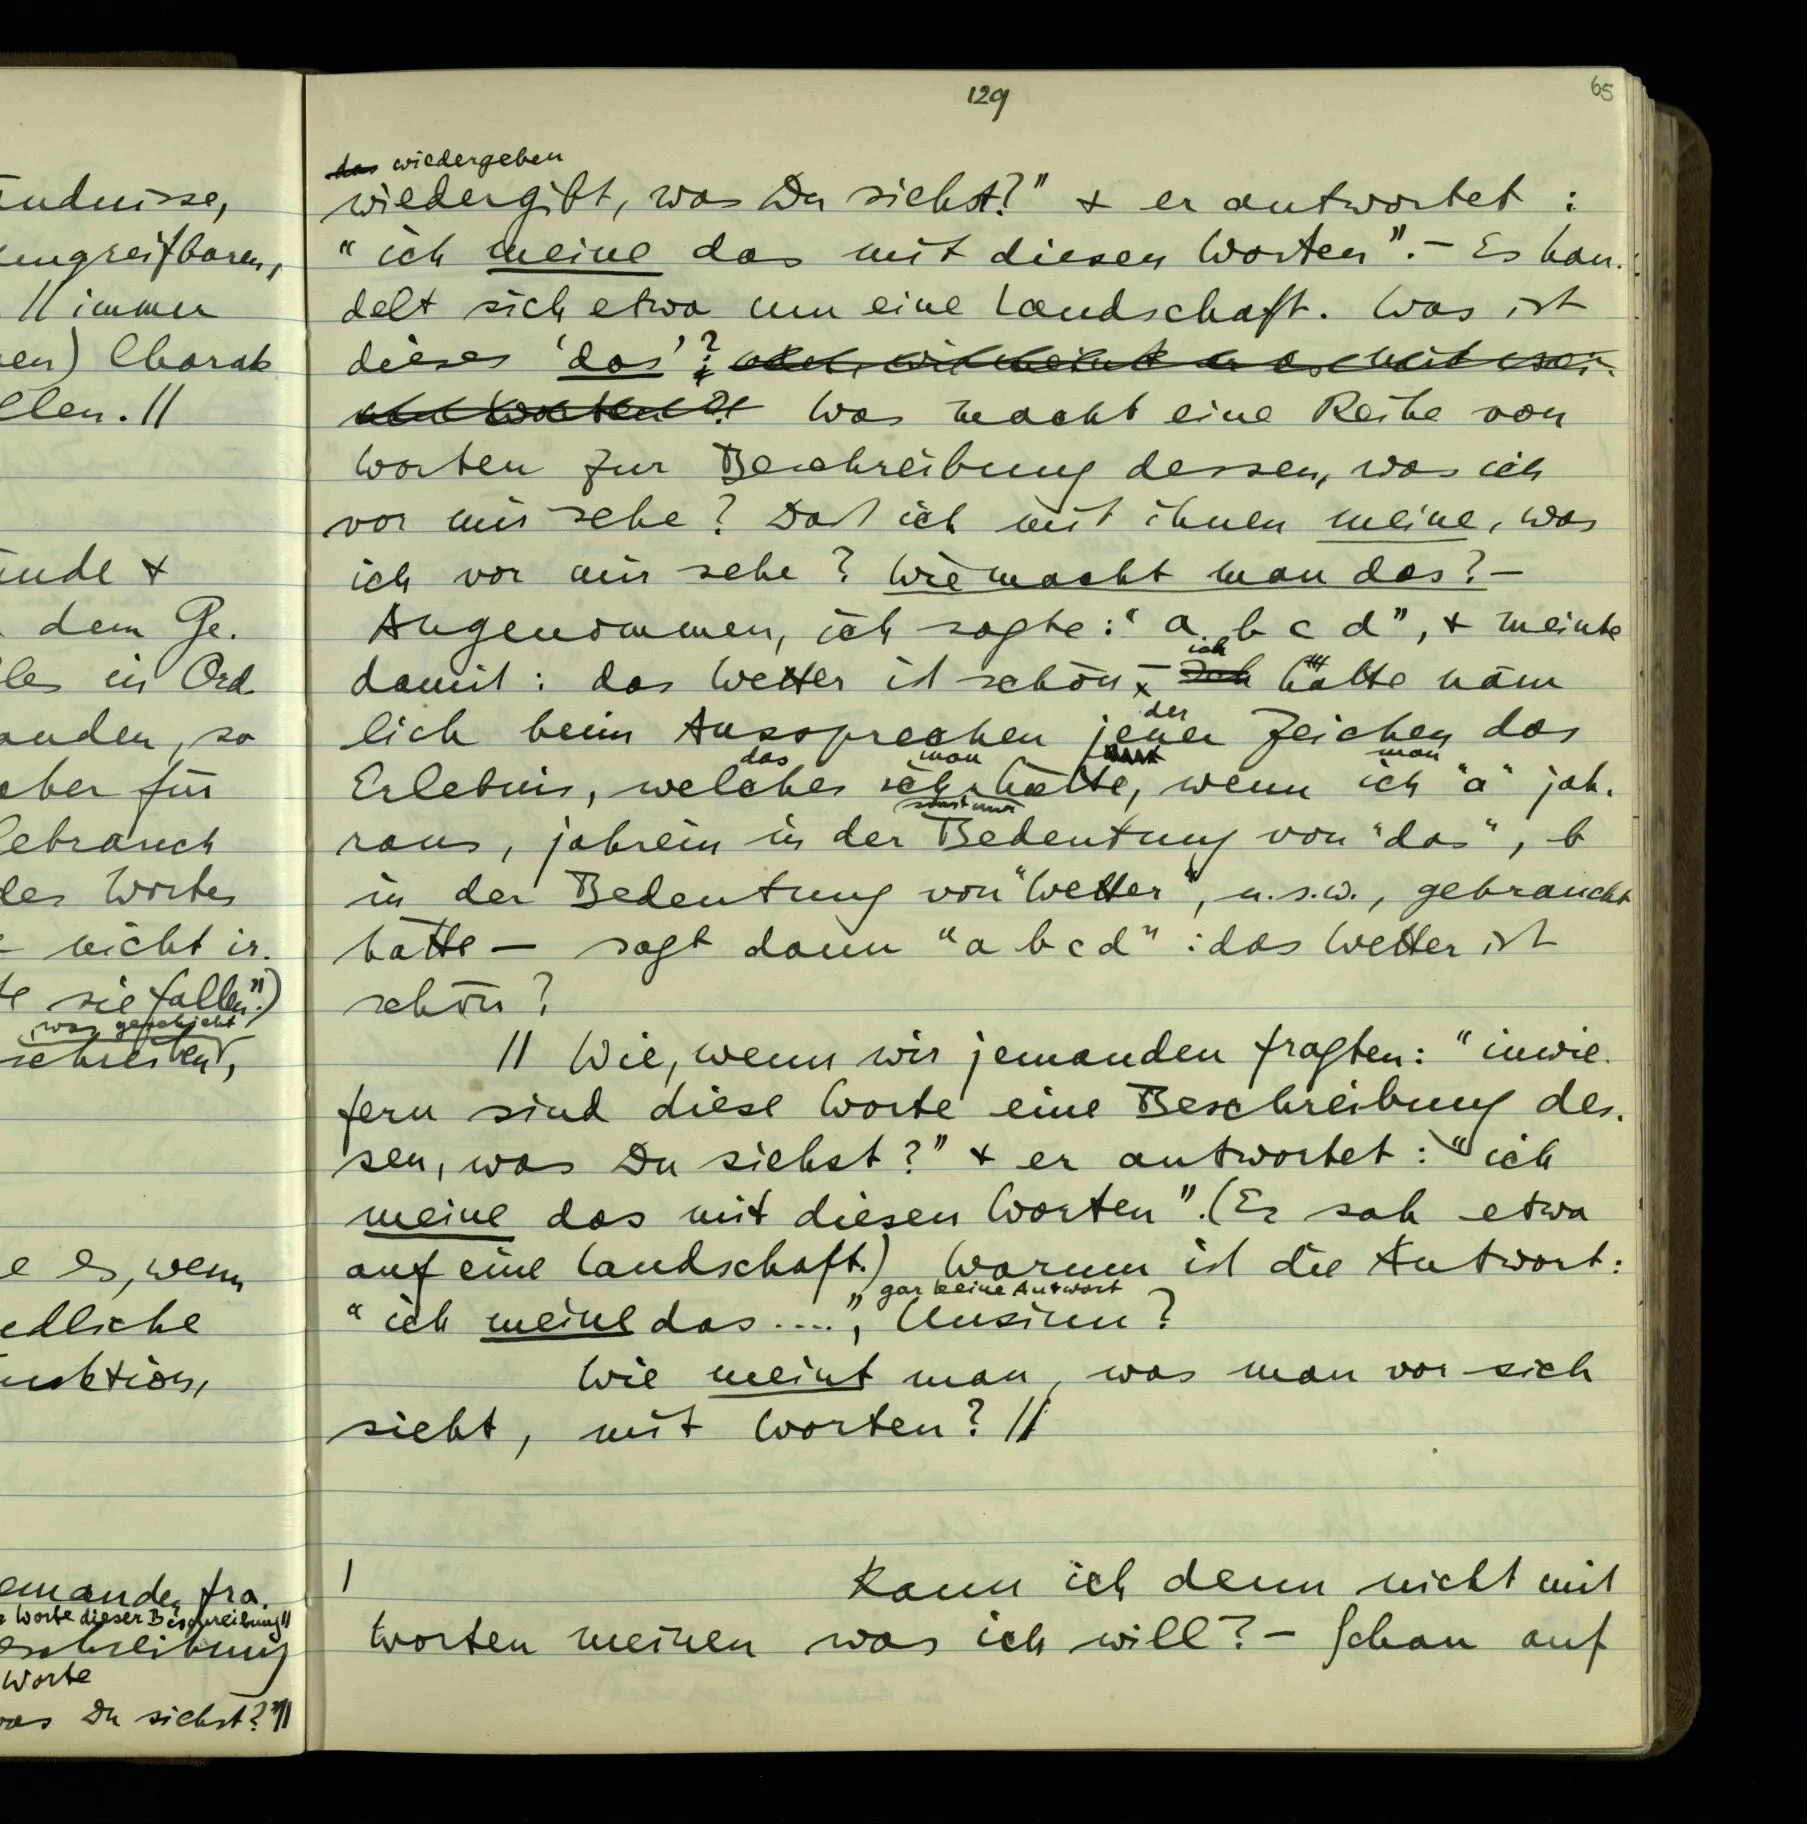 ändnisse,
ungreifbaren,
// immer
en) Charak
llen. //
ände &
dem Ge-
les in Ord-
anden, so
aber für
Gebrauch
des Wortes
nicht ir-
sie fallen".)
was geschieht
schreiben,
e es, wenn
edliche
unktion,
emanden fra-
Worte dieser Beschreibung //
eschreibung
Worte
was Du siehst?" //
129
65
das wiedergeben
wiedergibt, was Du siehst?" & er antwortet :
"ich meine das mit diesen Worten". – Es han-
delt sich etwa um eine Landschaft. Was ist
dieses 'das'?
Was macht eine Reihe von
Worten zur Beschreibung dessen, was ich
vor mir sehe? Daß ich mit ihnen meine, was
ich vor mir sehe? Wie macht man das? –
Angenommen, ich sagte: "a b c d", & meinte
ich
damit: das Wetter ist schön, – Ich hätte näm
der
lich beim Aussprechen jener Zeichen das
das man man
Erlebnis, welches ich hätte, wenn ich "a" jah-
sonst nur
raus, jahrein in der Bedeutung von "das", b
in der Bedeutung von "Wetter", u.s.w., gebraucht
hätte – sagt dann "a b c d" : das Wetter ist
schön?
// Wie, wenn wir jemanden fragten: "inwie-
fern sind diese Worte eine Beschreibung des-
sen, was Du siehst?" & er antwortet: "ich
meine das mit diesen Worten". (Er sah etwa
auf eine Landschaft.) Warum ist die Antwort:
gar keine Antwort
"ich meine das....", Unsinn?
Wie meint man, was man vor sich
sieht, mit Worten? //
| Kann ich denn nicht mit
Worten meinen was ich will? – Schau auf